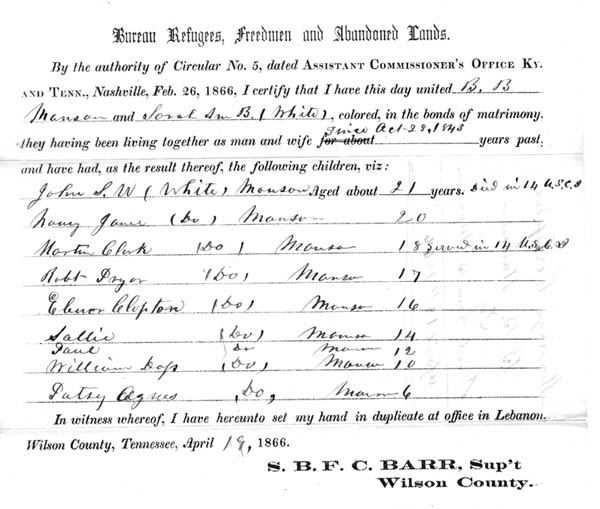 Bureau Refugees, Freedmen and Abandoned Lands.
By the authority of Circular No. 5, dated ASSISTANT COMMISSIONER'S OFFICE KY.
AND TENN., Nashville, Feb. 26, 1866, I certify that I have this day united B. B
Manson and Sarah An B. (White), colored, in the bonds of matrimony.
Since Oct 28, 1843
they having been living together as man and wife for about years past,
and have had, as the result thereof, the following children, viz:
John S. W (White) Manson Aged about 21 years. Died in 14 U.S.C.I
Nancy Jane (Do) Manson 20
Martin Clark (Do) Manson 18 Served in 14 U.S.C.I
Robt Pryor (Do) Manson 17
Elenor Clopton (Do) Manson 16
Sallie (Do) Manson 14
Paul Do Manson 12
William (Do) Manson 10
Patsy Agnes Do, Manson 6
In witness whereof, I have hereunto set my hand in duplicate at office in Lebanon.
Wilson County, Tennessee, April 19, 1866.
S. B. F. C. BARR, Sup't
Wilson County.